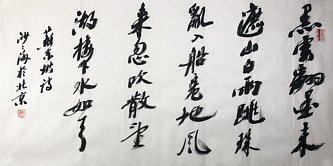 黑雲翻墨未
遮山白雨跳珠
亂入船卷地風
來忽吹散望
湖樓下水如天
蘇東坡詩
海於北京